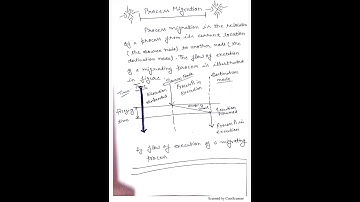 Process Migration
Process migration is the relocation
of a process from its current location
(the source node) to another node (the
dedication node). The flow of execution
of a migrating process is illustrated
in figure
Source Node
Destination
node
Time
Process P1 in
execution
Execution
suspended
Freezing
time
Execution
resumed
Process P1 in
execution
fig flow of execution of a migrating
process
Scanned by CamScanner